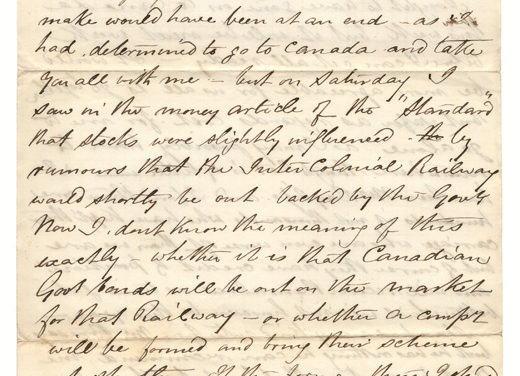 make would have been at an end - as I
had determined to go to Canada and take
you all with me - but on Saturday I
saw in the money article of the "Standard"
that stocks were slightly influenced - th by
rumours that the Inter Colonial Railway
would shortly be out backed by the Govt
Now I don't know the meaning of this
exactly - whether it is that Canadian
Govt bonds will be out on the market
for that Railway - or whether a compy
will be formed and bring their scheme